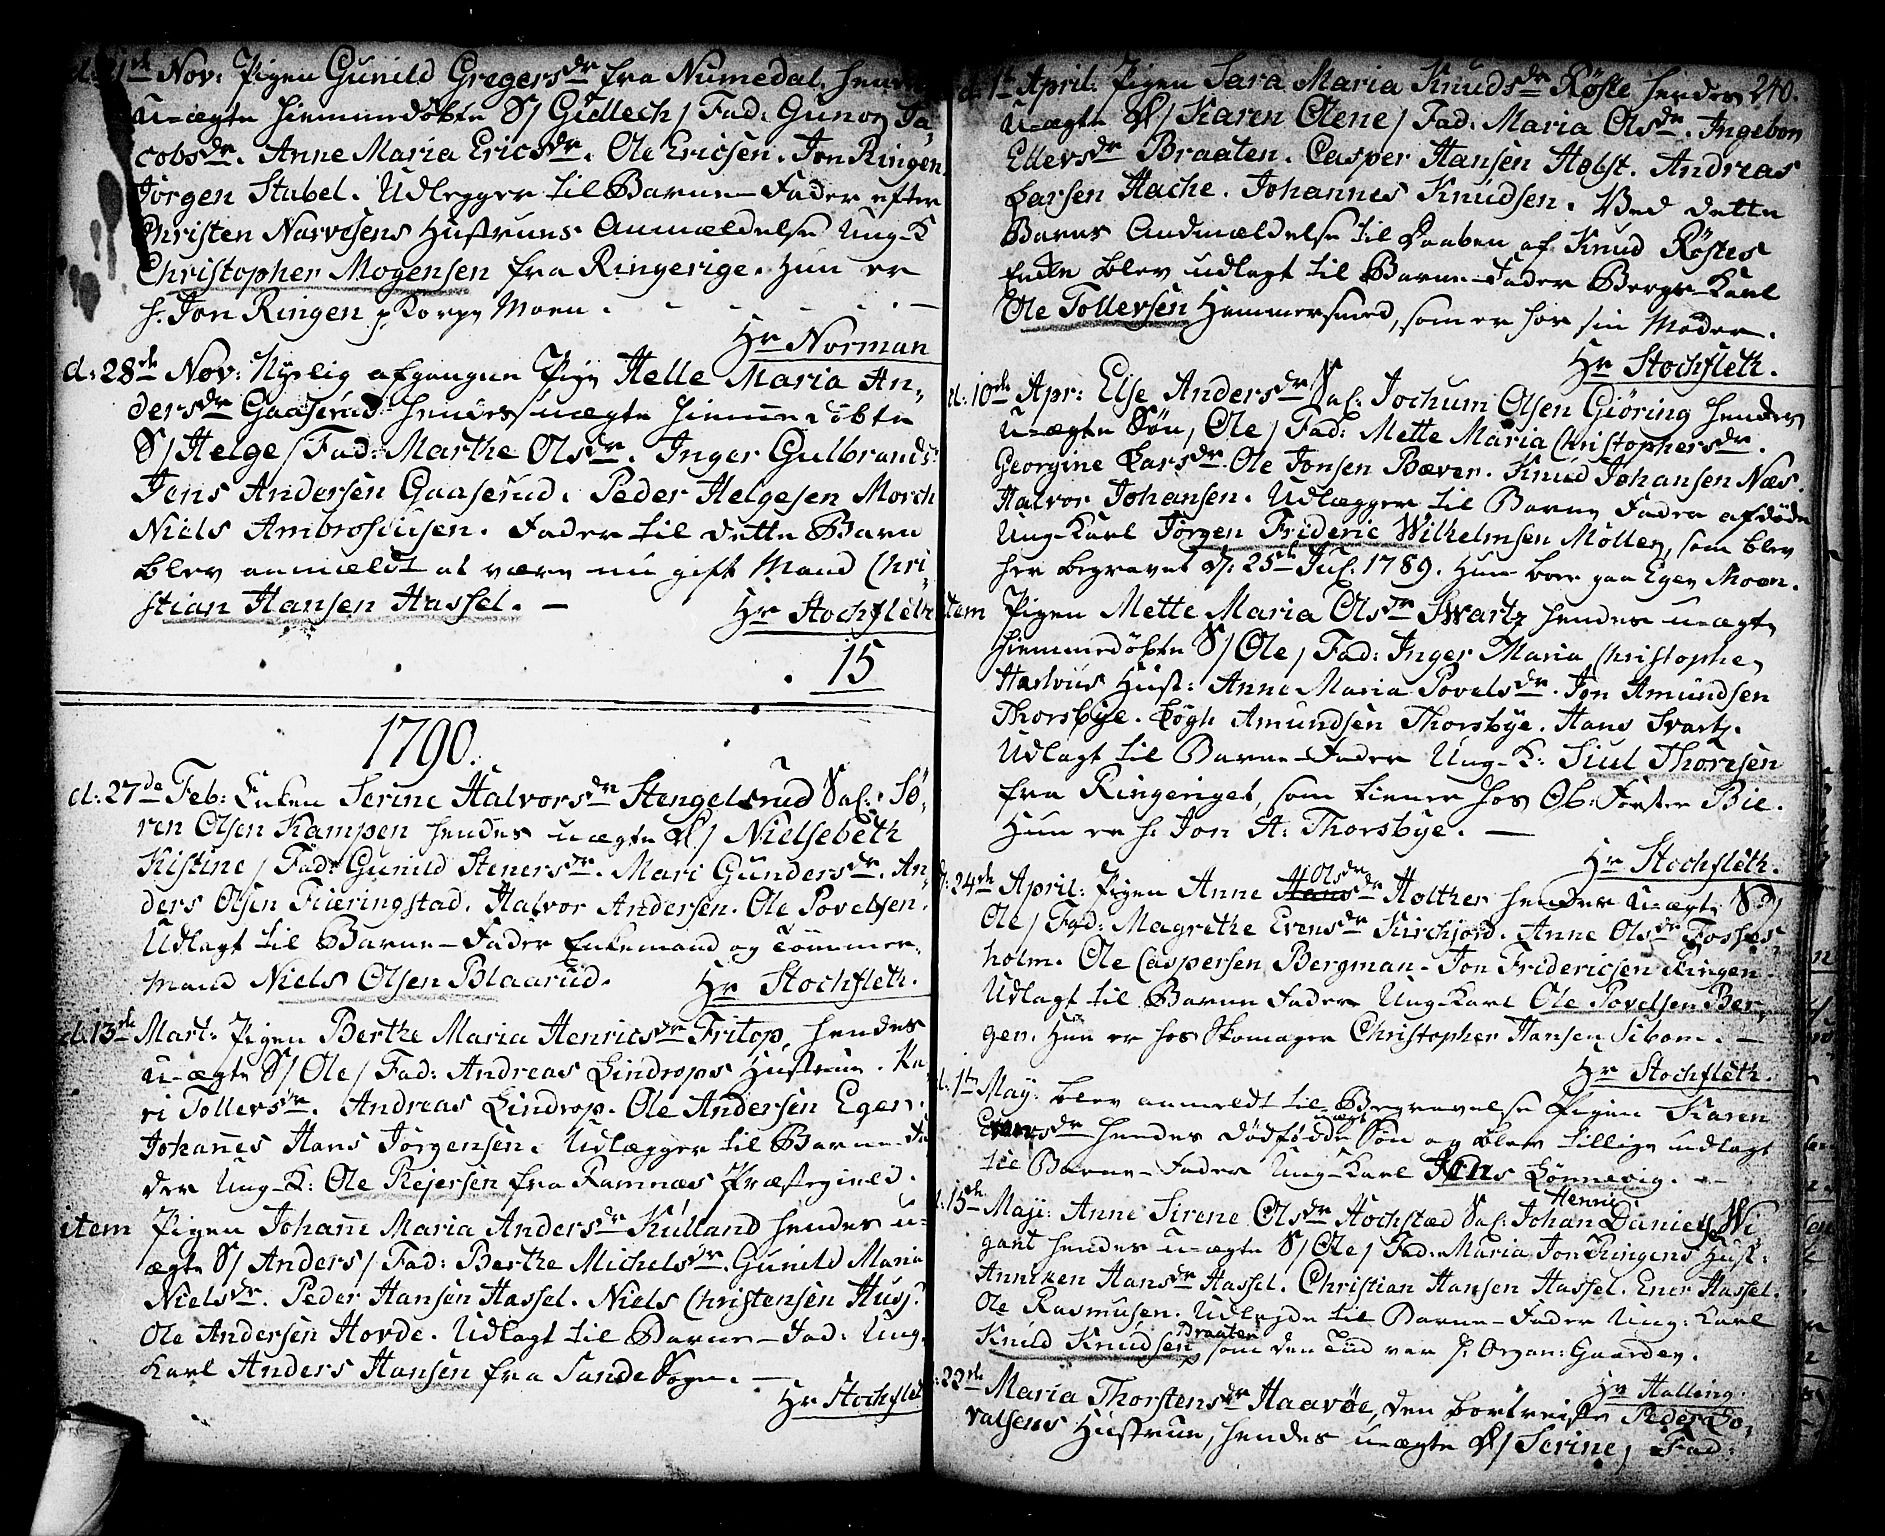 d: 21de Nov: Pigen Gunild Gregersdr fra Numedal, hendes
u-ægte hiemmedøbte S/ Gullech / Fad: Gunor Ja-
cobsdr. Anne Maria Ericsdr. Ole Ericsen. Jon Ringen.
Jørgen Stabel. Udlegger til Barne-Fader efter
Christen Narvesens Hustrues Anmældelse Ung-K
Christopher Mogensen fra Ringerige. Hun er
h. Jon Ringen p Moen.
Hr Norman
d: 28de Nov: Nylig afgangne Pige Helle Maria An-
dersdr Gaaserud hendes uægte hiemmedøbte
S/ Helge / Fad: Marthe Olsdr. Inger Gulbrandsdr
Jens Andersen Gaaserud. Peder Helgesen Morch
Niels Ambrosiusen. Fader til dette Barn
blev anmeldt at være nu gift Mand Chri-
stian Hansen Hassel. —
Hr Stochfleth
15
1790.
d: 27de Feb: Enken Serine Halvorsdr Stengelsrud Sal: Sø-
ren Olsen Kampen hendes uægte D/ Nielsebeth
Kistine / Fad: Gunild Stenersdr. Mari Gundersdr. An-
ders Olsen Fiæringstad. Halvor Andersen. Ole Povelsen.
Udlagt til Barne-Fader Enkemand og Tømmer-
mand Niels Olsen Blaarud.
Hr Stochfleth.
d. 13de Mart: Pigen Berthe Maria Henricsdr Fritop, hendes
u-ægte S/ Ole / Fad: Andreas Lindrops Hustrue. Ka-
ri Tollersdr. Andreas Lindrop. Ole Andersen Eger.
Johanes Hans Jørgensen. Udlægger til Barne-Fa-
der Ung-K: Ole Rejersen fra Ramnæs Præstegield.
item Pigen Johane Maria Andersdr Kulland hendes u-
ægte S/ Anders / Fad: Berthe Michelsdr. Gunild Maria
Nielsdr. Peder Hansen Hassel. Niels Christensen Hus.
Ole Andersen Hovde. Udlagt til Barne-Fad: Ung-
Karl Anders Hansen fra Sande Sogn. —
Hr Stochfleth
240.
d. 1te April: Pigen Sara Maria Knudsdr Røste hendes
u-ægte D/ Karen Olene / Fad: Maria Olsdr. Ingebor
Ellevsdr Braaten. Casper Hansen Holst. Andreas
Larsen Hache. Johannes Knudsen. Ved dette
Barns Andmældelse til Daaben af Knud Røstes
Enke blev udlagt til Barne-Fader Bergs-Karl
Ole Tollevsen Hammersmed, som er hos sin Moder.
Hr Stochfleth.
d. 10de Apr: Else Andersdr Sal. Jochum Olsen Giøring hendes
u-ægte Søn, Ole / Fad: Mette Maria Christophersdr.
Georgine Larsdr. Ole Jonsen Bæver. Knud Johansen Næs.
Halvor Johansen. Udlægger til Barne Fader afdøde
Ung-Karl Jørgen Frideric Wilhelmsen Møller, som blev
her begravet d. 25de Jul. 1789. Hun boer paa Eger Moen.
item Pigen Mette Maria Olsdr Swartz hendes u-ægte
hiemmedøbte S/ Ole / Fad: Inger Maria Christopher
Hust: Anne Maria Povelsdr. Jon Amundsen
Thorsbye. Amundsen Thorsbye. Hans Svartz.
Udlagt til Barne-Fader Ung-K: Siul Thoresen
fra Ringeriget, som tiener hos Ob: Forster Bie.
Hun er h. Jon A: Thorsbye. —
Hr Stochfleth.
d. 24de April: Pigen Anne Olsdr Holther hendes u-ægte S/
Ole / Fad: Magrethe Evensdr Kirchjord. Anne Olsdr Fosses-
holm. Ole Caspersen Bergman. Jon Fridericsen Ringen
Udlagt til Barne Fader Ung-Karl Ole Povelsen Ber-
gen. Hun er hos Skomager Christopher Hansen Sibom. —
Hr Stochfleth.
d. 1te May: blev anmeldt til Begravelse Pigen Karen
Evensdr hendes dødfødde uægte Søn og blev tillige udlagt
til Barne-Fader Ung-Karl Jens Lønnevig. —
d. 15de Maji: Anne Sirene Olsdr Hochstæd Sal. Johan Henric Daniel Wi-
gant hendes u-ægte S/ Ole / Fad: Maria Jon Ringens Hust:
Anneken Hansdr Hassel. Christian Hansen Hassel. Ener Hassel.
Ole Rasmusen. Udlagde til Barne-Fader Ung-Karl
Knud Knudsen Braaten som den Tiid var p. Gaarden.
Hr Halling.
22de Maria Thorstensdr Haavøe, den bortreiste Peder Jo-
Hustrue, hendes u-ægte D/ Serine / Fad: